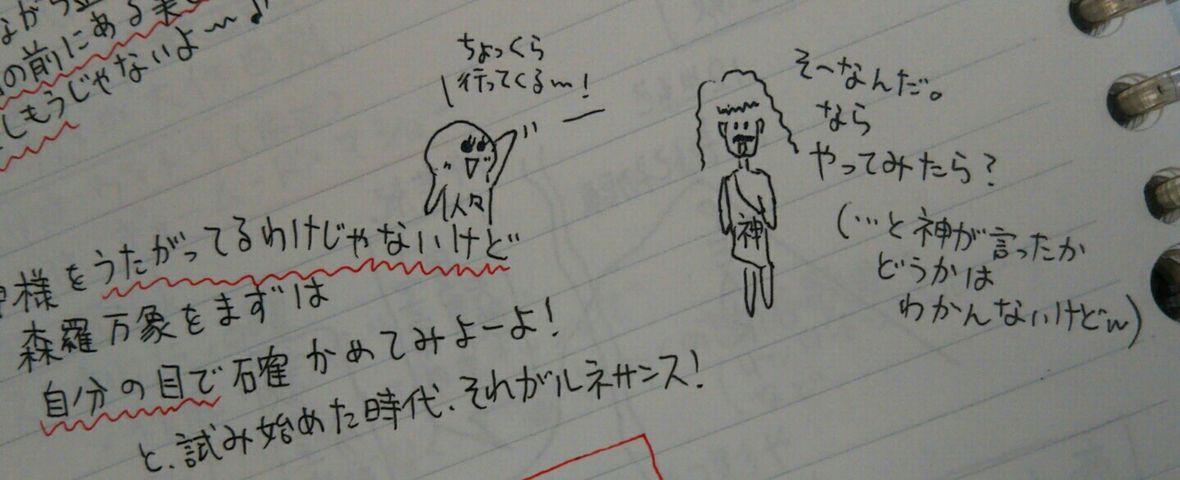 ながら
の前にある
しもうじゃないよ〜♪
ちょっくら
行ってくる〜!
人々
そ〜なんだ。
なら
やってみたら?
神
(…と神が言ったか
どうかは
わかんないけどw)
様をうたがってるわけじゃないけど
森羅万象をまずは
自分の目で確かめてみよーよ!
と、試み始めた時代、それがルネサンス!